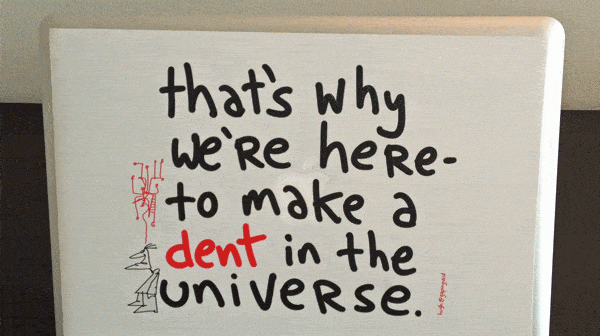 that's why
we're here-
to make a
dent in the
universe.